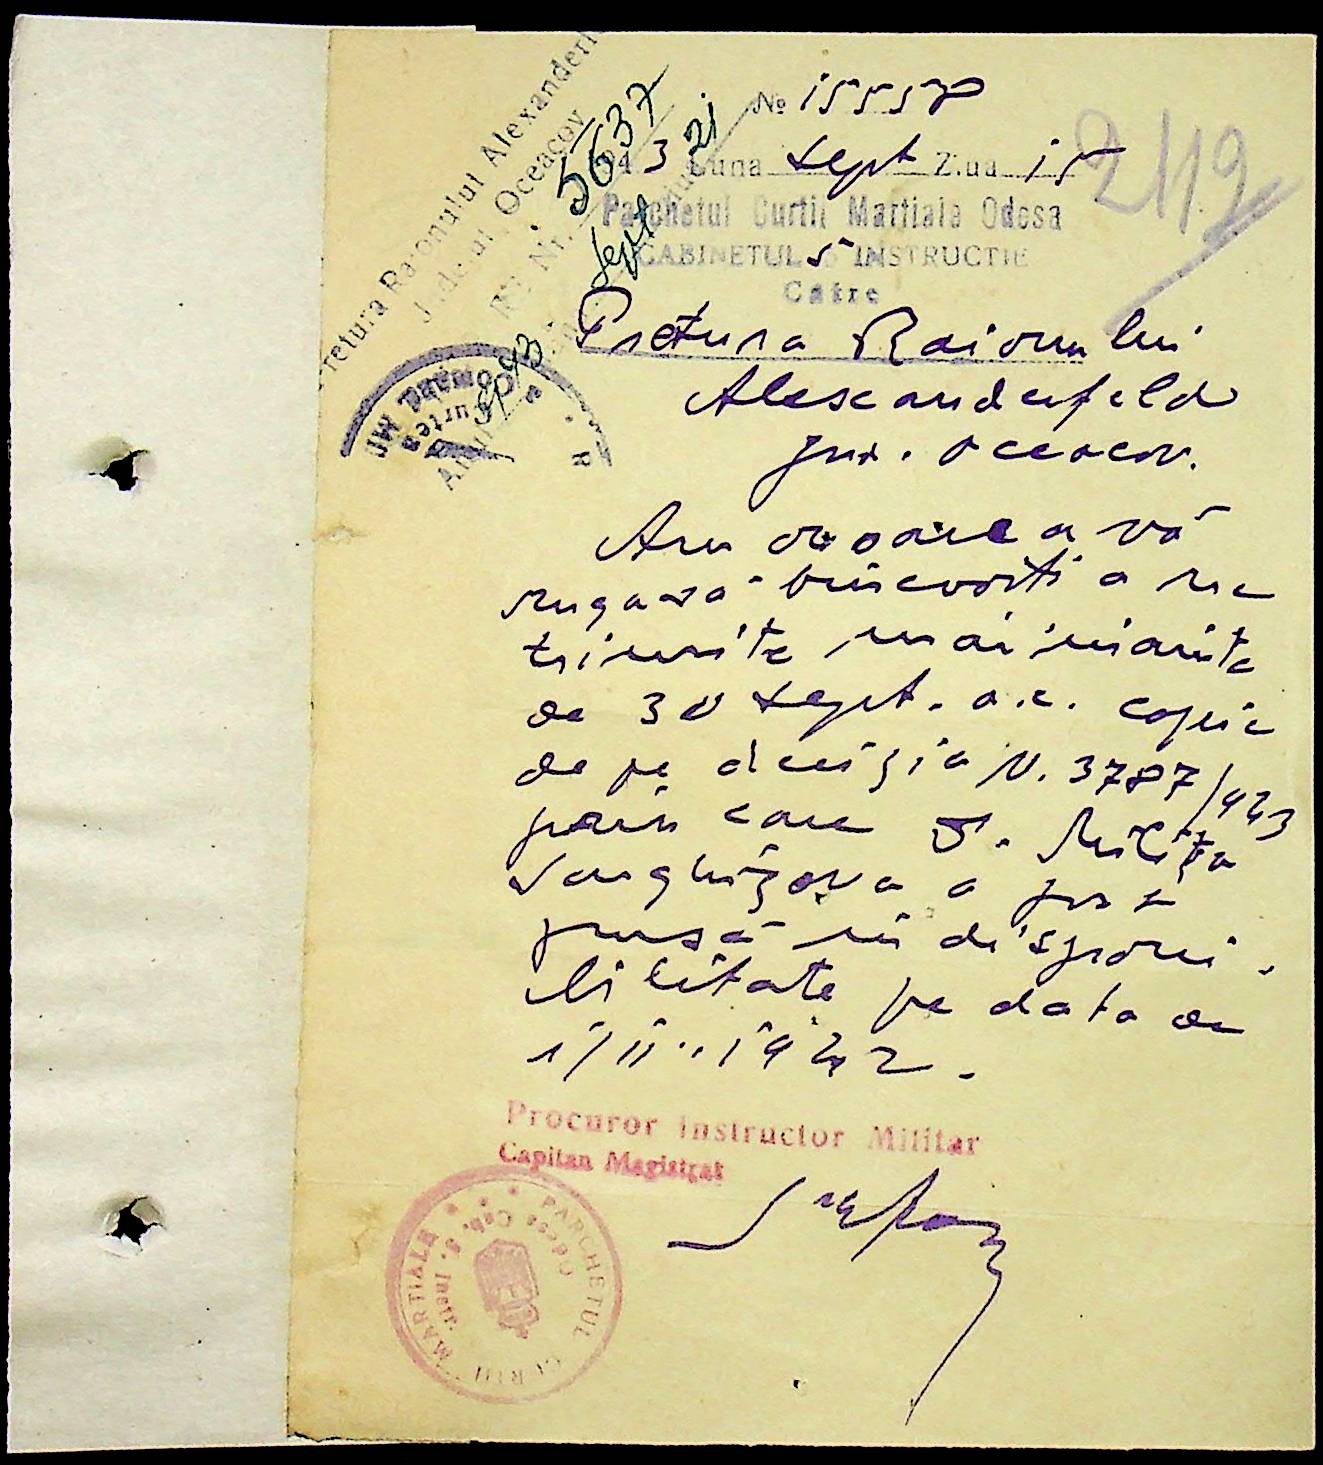 Pretura Raionului Alexanderfe
Județul Oceacov
Nr. 5637
Sept 21
943
№ 15557
43 Luna Sept Ziua 15
2119
Parchetul Curtii Martiale Odesa
CABINETUL 5 INSTRUCTIE
Către
Pretura Raionului
Alexanderfeld
jud. Oceacov.
Am onoarea vă
ruga să binevoiți a ne
trimite mai înainte
de 30 Sept. a.c. copie
de pe decizia N. 3787/943
prin care D. Milița
a fost
pusă în disponi-
bilitate pe data de
1/II.1942.
Procuror Instructor Militar
Capitan Magistrat
PARCHETUL CURTII MARTIALE
Odessa Cab. 5. Instr.